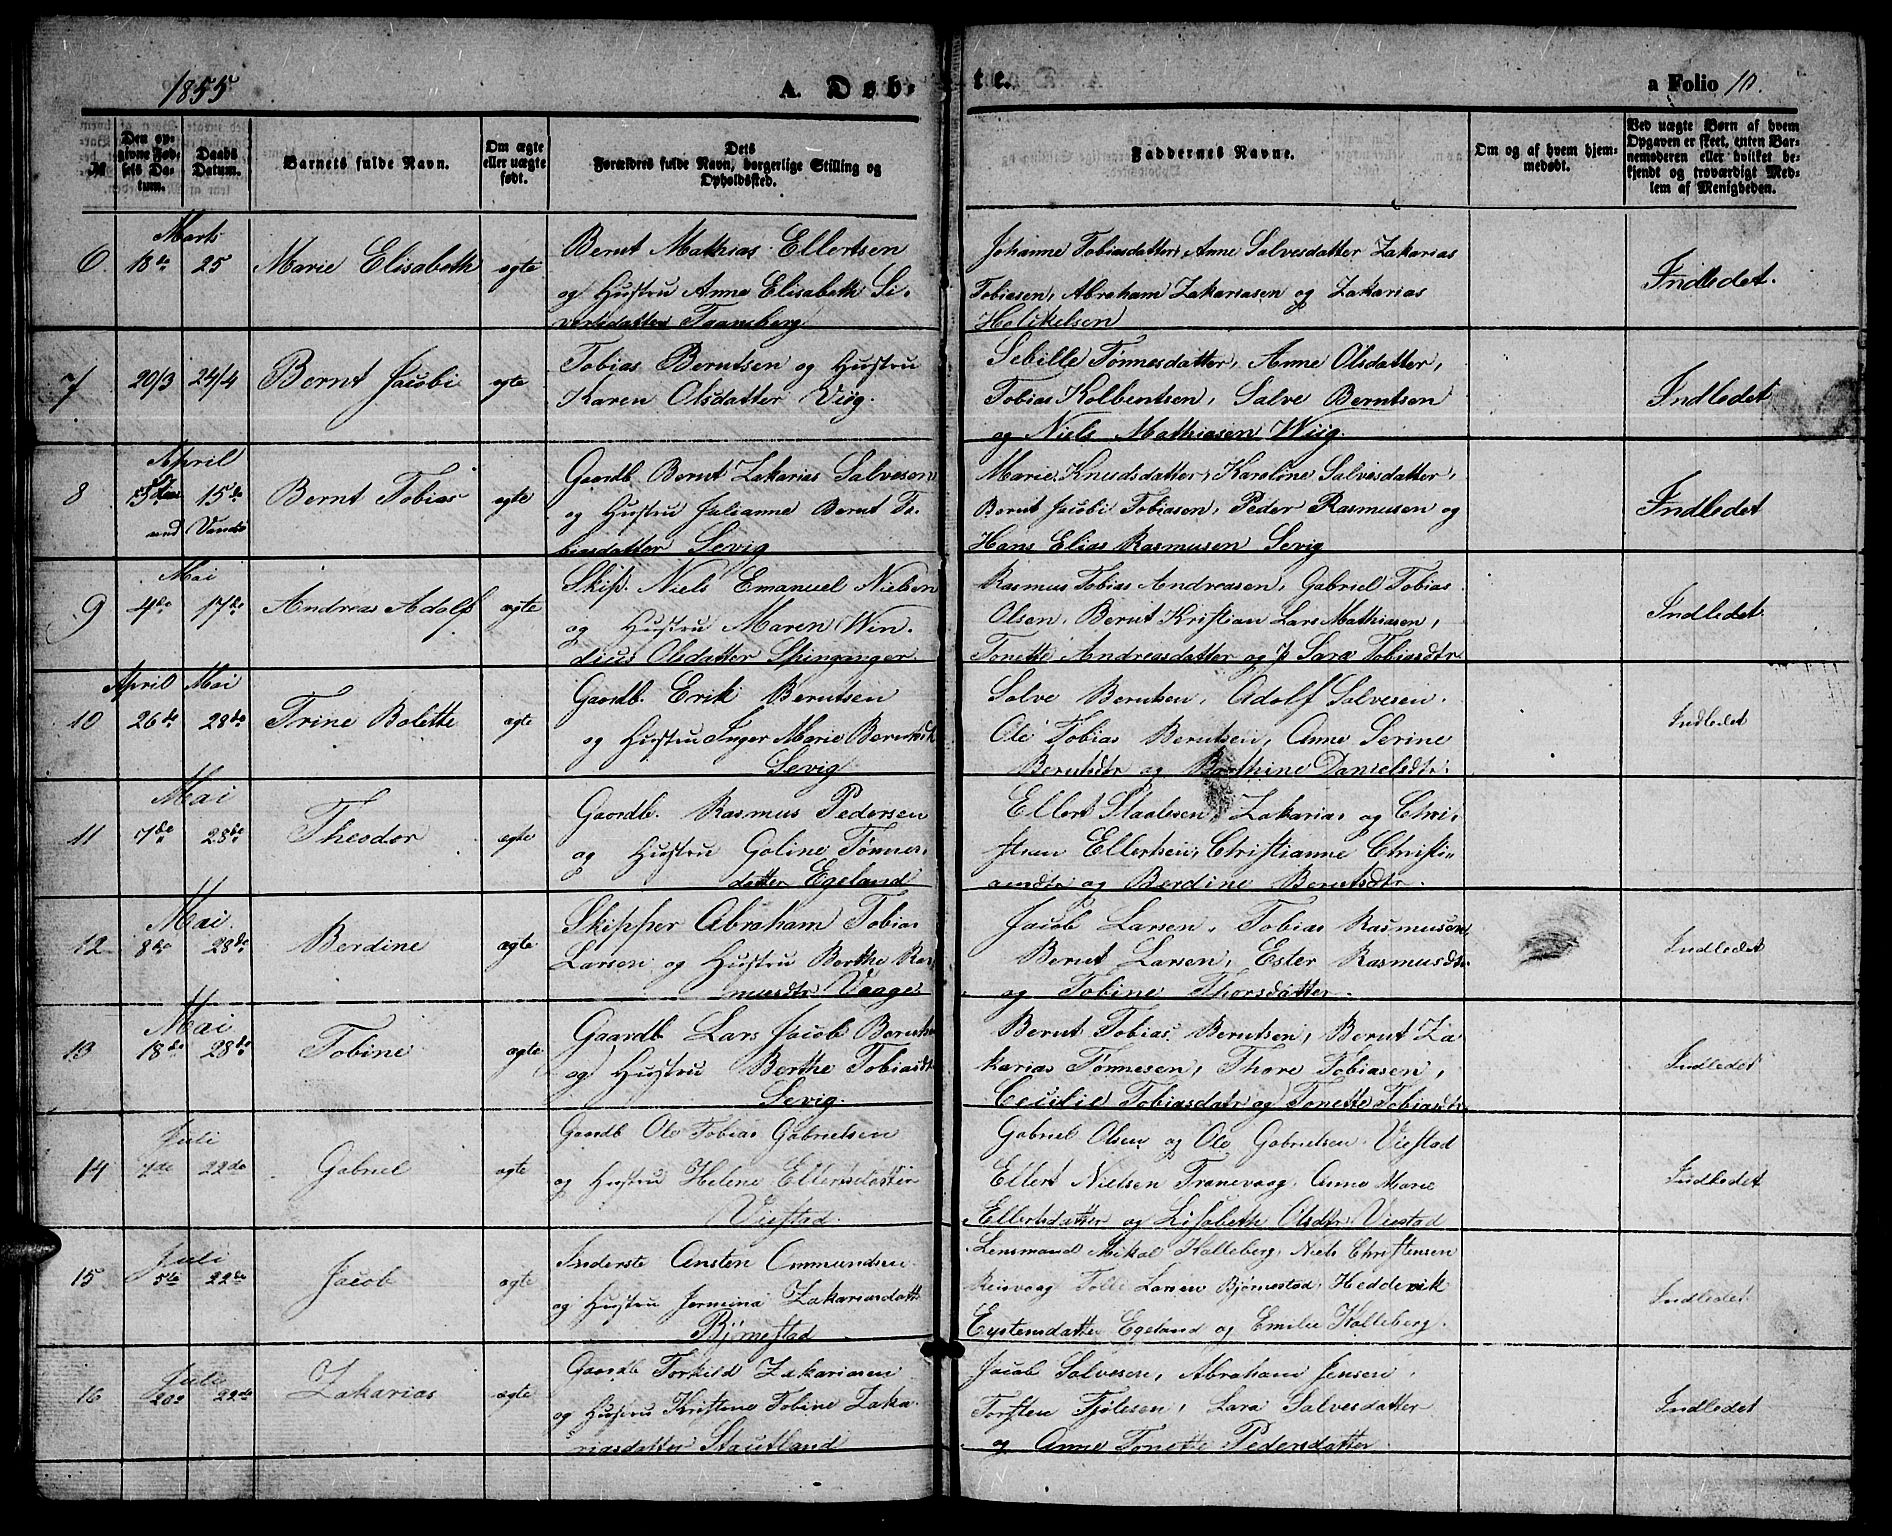 1855
A. Døb-
te.
a Folio 10.
№
Den op-
givne Fød-
sels Da-
tum.
Daabs
Datum.
Barnets fulde Navn.
Om ægte
eller uægte
født.
Dets
Forældres fulde Navn, borgerlige Stilling og
Opholdssted.
Faddernes Navne.
Om og af hvem hjem-
medøbt.
Ved uægte Børn af hvem
Opgaven er skeet, enten Bar-
nemoderen eller hvilket be-
kjendt og troværdigt Med-
lem af Menigheden.
Marts
6. 18de 25 Marie Elisabeth ægte
Bernt Mathias Ellertsen
og Hustru Anne Elisabeth Si-
vertsdatter
Johanne Tobiasdatter, Anne Salvesdatter Zakarias
Tobiasen, Abraham Zakariasen og Zakarias
Indledet.
7 20/3 24/4 Bernt Jacobi ægte
Tobias Berntsen og Hustru
Karen Olsdatter Viig.
Sebille Tønnesdatter, Anne Olsdatter,
Tobias Kolbentsen, Salve Berntsen
og Niels Mathiasen Wiig.
Indledet
April
8 15de Bernt Tobias ægte
Gaardb. Bernt Zakarias Salvesen
og Hustru Julianne Bernt To-
biasdatter Sevig
Marie Knudsdatter, Karoline Salvesdatter,
Bernt Jacobi Tobiasen, Peder Rasmusen og
Hans Elias Rasmusen Sevig
Indledet
Mai
9 4de 17de Andreas Adolf ægte
Skip. Niels Emanuel Nielsen
og Hustru Maren Win-
dius Olsdatter Spinganger.
Rasmus Tobias Andreasen, Gabriel Tobias
Olsen, Bernt Kristian Lars Mathiasen,
Tonette Andreasdatter og Sara Tobiasdtr
Indledet
April Mai
10 26de 28de Trine Bolette ægte
Gaardb. Erik Berntsen
og Hustru Inger Marie
Sevig
Salve Berntsen, Adolf Salvesen.
Ole Tobias Berntsen, Anne Serine
Berntsdtr og Berthine Danielsdtr.
Indledet
Mai
11 7de 28de Theodor ægte
Gaardb. Rasmus Pedersen
og Hustru Goline Tønnes-
datter Egeland
Ellert Staalesen, Zakarias og Chri-
stian Ellertsen, Christianne Christi-
ansdtr og Berdine Berntsdtr.
Indledet
Mai.
12 8de 28de Berdine ægte
Skipper Abraham Tobias
Larsen og Hustru Berthe Ras-
musdtr Vaage
Jacob Larsen, Tobias Rasmusen,
Bernt Larsen, Ester Rasmusdtr
og Tobine Thorsdatter.
Indledet
Mai
13 18de 28de Tobine ægte
Gaardb Lars Jacob Berntsen
og Hustru Berthe Tobiasdtr
Sevig.
Bernt Tobias Berntsen, Bernt Za-
karias Tønnesen, Thore Tobiasen,
Cecilie Tobiasdatr og Tonette Tobiasdtr
Indledet
Juli
14 22de Gabriel ægte
Gaardb Ole Tobias Gabrielsen
og Hustru Helene Ellertsdatter
Viestad.
Gabriel Olsen og Ole Gabrielsen Viestad
Ellert Nielsen Tranevaag, Anne Marie
Ellertsdatter og Lisabeth Olsdtr Viestad
Indledet
Juli
15 5te 22de Jacob ægte
Inderste Ansten Ommundsen
og Hustru Jermina Zakariasdatter
Bjørnestad
Lensmand Mikal Kalleberg, Niels Christensen
Reisvaag Tolli Larsen Bjørnestad, Heddevik
Eystensdatter Egeland og Emilie Kalleberg.
Indledet
Juli
16 22de Zakarias ægte
Gaardb Torkild Zakariasen
og Hustru Kristine Tobine Zaka-
riasdatter Stautland
Jacob Salvesen, Abraham Jensen,
Torsten Fjølesen, Sara Salvesdatter
og Anne Tonette Pedersdatter.
Indledet